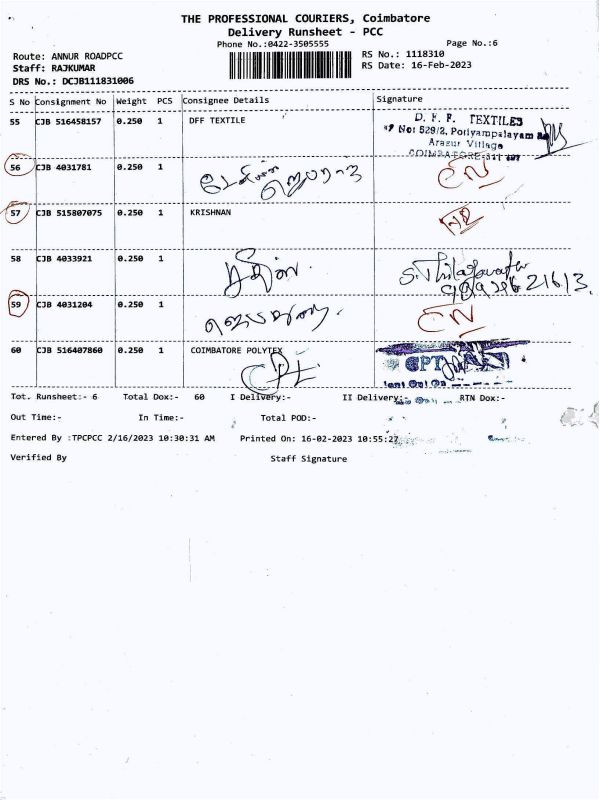 THE PROFESSIONAL COURIERS, Coimbatore
Delivery Runsheet - PCC
Phone No.:0422-3505555
Page No.:6
Route: ANNUR ROADPCC
RS No.: 1118310
Staff: RAJKUMAR
RS Date: 16-Feb-2023
DRS No.: DCJB111831006
S No Consignment No Weight PCS Consignee Details Signature
55 CJB 516458157 0.250 1 DFF TEXTILE
D. F. F. TEXTILES
No: 529/2, Pottyampalayam
Arasur Village
COIMBATORE-641 407
56 CJB 4031781 0.250 1
57 CJB 515807075 0.250 1 KRISHNAN
58 CJB 4033921 0.250 1
59 CJB 4031204 0.250 1
60 CJB 516407860 0.250 1 COIMBATORE POLYTEX
CPT
Tot. Runsheet:- 6 Total Dox:- 60 I Delivery:- II Delivery:- RTN Dox:-
Out Time:- In Time:- Total POD:-
Entered By :TPCPCC 2/16/2023 10:30:31 AM Printed On: 16-02-2023 10:55:27
Verified By Staff Signature